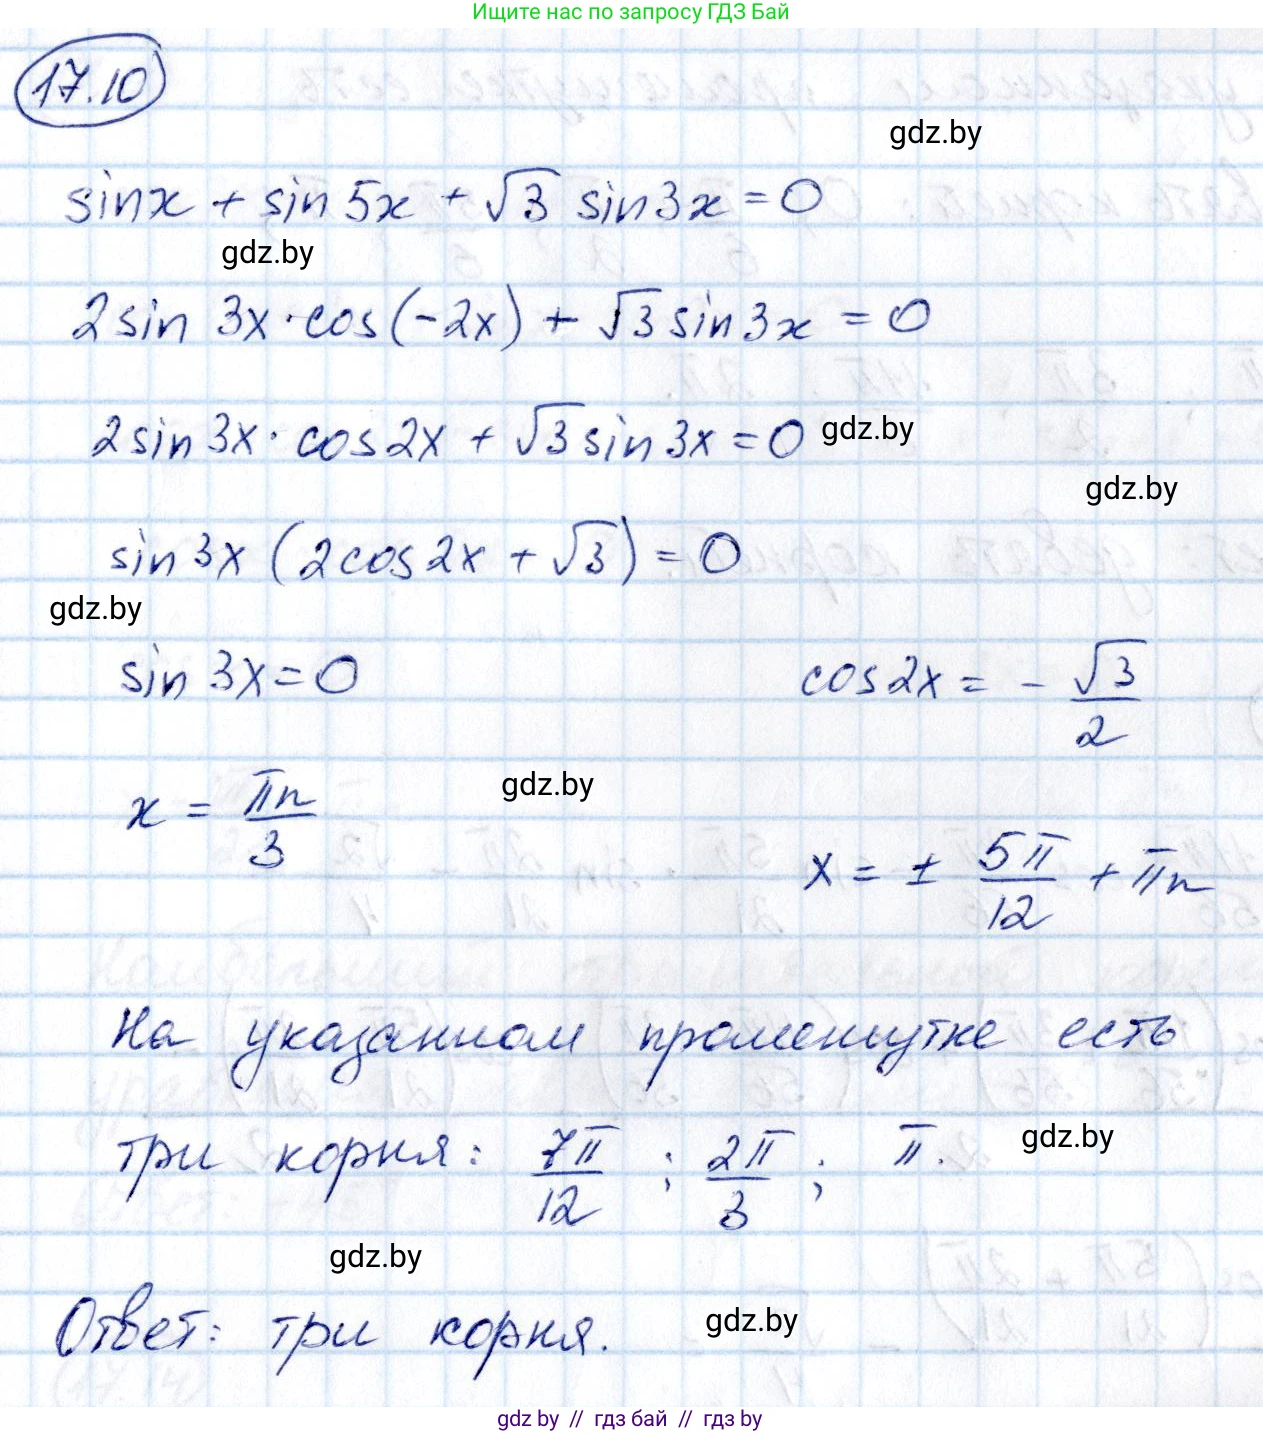 Ищите нас по запросу ГДЗ Бай
17.10
gdz.by
sinx + sin 5x + √3 sin3x = 0
gdz.by
2sin 3x · cos(-2x) + √3 sin3x = 0
2sin 3x · cos2x + √3 sin 3x = 0
gdz.by
gdz.by
sin 3x (2cos2x + √3) = 0
gdz.by
sin 3x = 0 cos2x = - √3/2
x = πn/3
gdz.by
x = ± 5π/12 + πn
На указанном промежутке есть
три корня: 7π/12 ; 2π/3 ; π.
gdz.by
gdz.by
Ответ: три корня.
gdz.by
gdz by // гдз бай // гдз by